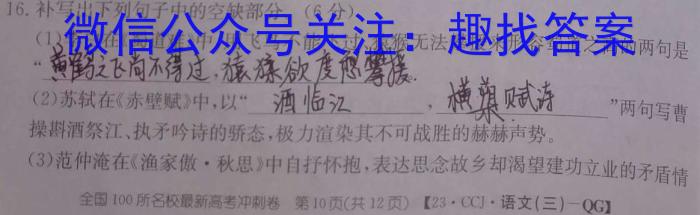 16.补写出下列句子中的空缺部分。(6分)
微信公众号关注：趣找答案
(1)
两句是
“黄鹤之飞尚不得过，猿猱欲度愁攀援
(2)苏轼在《赤壁赋》中,以“酒临江，横槊赋诗”两句写曹
操斟酒祭江、执矛吟诗的骄态,极力渲染其不可战胜的赫赫声势。
(3)范仲淹在《渔家傲·秋思》中自抒怀抱,表达思念故乡却渴望建功立业的矛盾情
全国100所名校最新高考冲刺卷 第10页(共12页)【23·CCJ·语文(三)—QG】